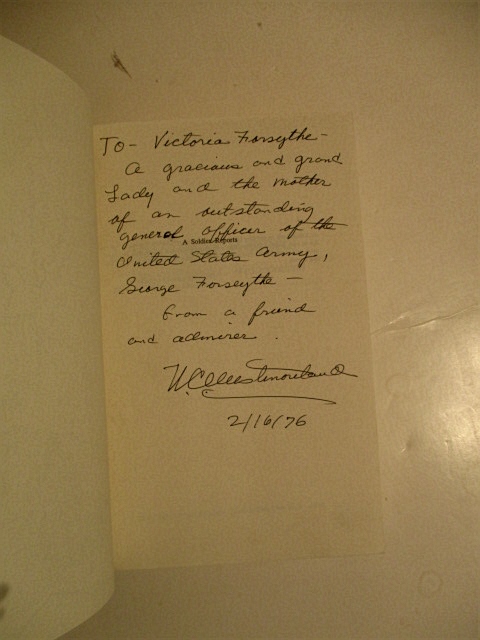 To - Victoria Forsythe -
A gracious and grand
Lady and the mother
of an outstanding
general officer of the
A Soldier Reports
United States Army,
George Forseythe -
From a friend
and admirer.
W.C. Westmoreland
2/16/76